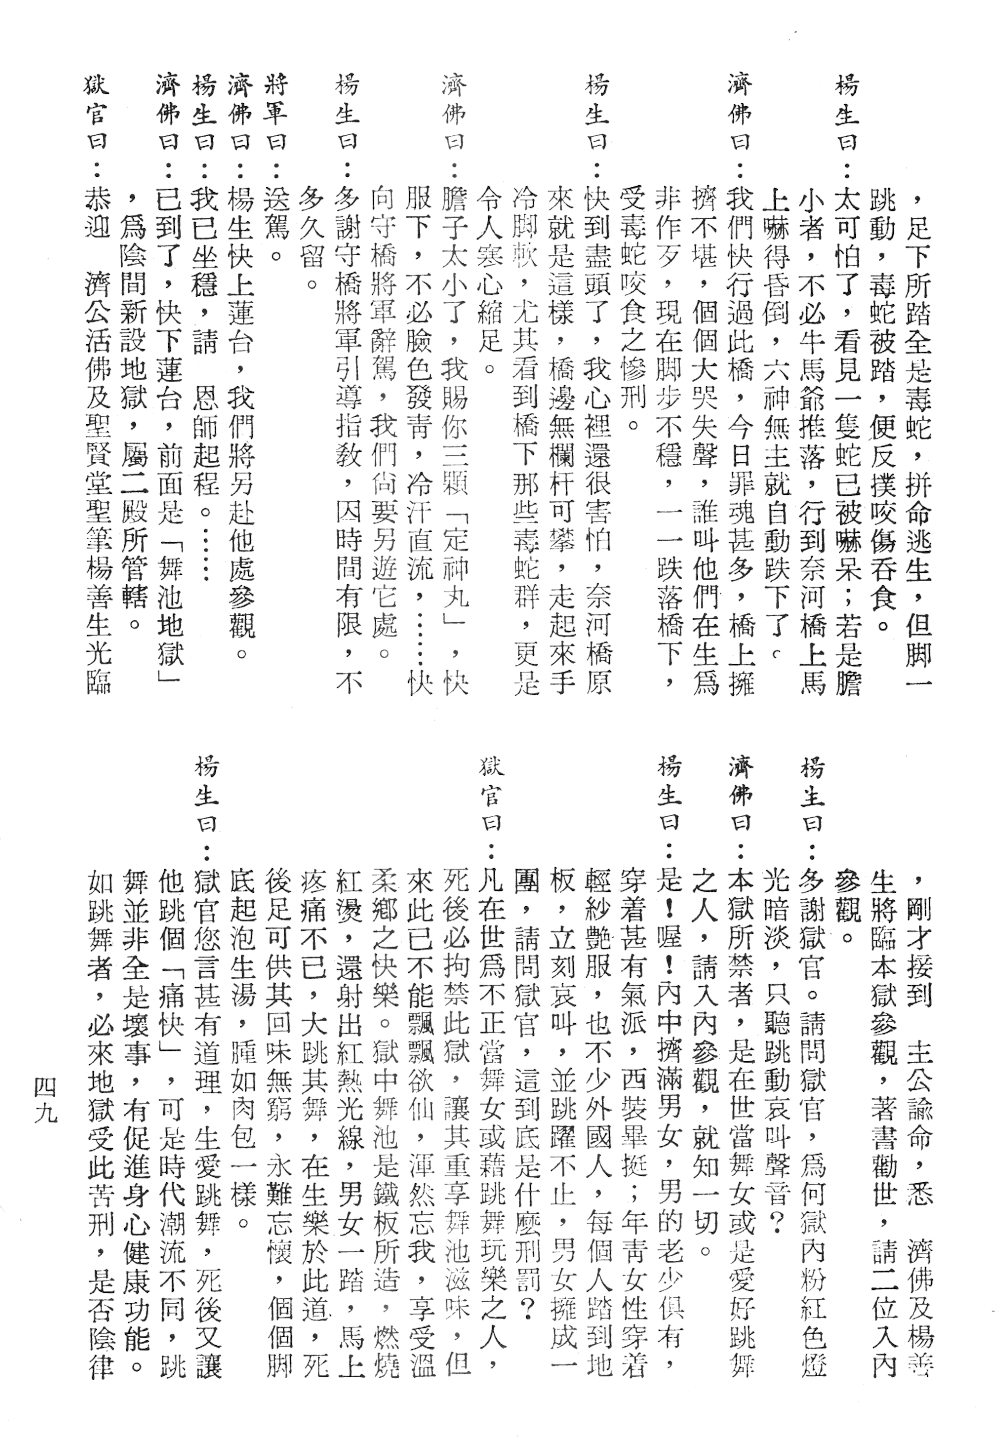 ，足下所踏全是毒蛇，拼命逃生，但脚一
跳動，毒蛇被踏，便反撲咬傷吞食。
楊生曰：太可怕了，看見一隻蛇已被嚇呆；若是膽
小者，不必牛馬爺推落，行到奈河橋上馬
上嚇得昏倒，六神無主就自動跌下了。
濟佛曰：我們快行過此橋，今日罪魂甚多，橋上擁
擠不堪，個個大哭失聲，誰叫他們在生爲
非作歹，現在脚步不穩，一一跌落橋下，
受毒蛇咬食之慘刑。
楊生曰：快到盡頭了，我心裡還很害怕，奈河橋原
來就是這樣，橋邊無欄杆可攀，走起來手
冷脚軟，尤其看到橋下那些毒蛇群，更是
令人寒心縮足。
濟佛曰：膽子太小了，我賜你三顆「定神丸」，快
服下，不必臉色發靑，冷汗直流，……快
向守橋將軍辭駕，我們尙要另遊它處。
楊生曰：多謝守橋將軍引導指敎，因時間有限，不
多久留。
將軍曰：送駕。
濟佛曰：楊生快上蓮台，我們將另赴他處參觀。
楊生曰：我已坐穩，請　恩師起程。……
濟佛曰：已到了，快下蓮台，前面是「舞池地獄」
，爲陰間新設地獄，屬二殿所管轄。
獄官曰：恭迎　濟公活佛及聖賢堂聖筆楊善生光臨
，剛才接到　主公諭命，悉　濟佛及楊善
生將臨本獄參觀，著書勸世，請二位入內
參觀。
楊生曰：多謝獄官。請問獄官，爲何獄內粉紅色燈
光暗淡，只聽跳動哀叫聲音？
濟佛曰：本獄所禁者，是在世當舞女或是愛好跳舞
之人，請入內參觀，就知一切。
楊生曰：是！喔！內中擠滿男女，男的老少俱有，
穿着甚有氣派，西裝畢挺；年靑女性穿着
輕紗艷服，也不少外國人，每個人踏到地
板，立刻哀叫，並跳躍不止，男女擁成一
團，請問獄官，這到底是什麼刑罰？
獄官曰：凡在世爲不正當舞女或藉跳舞玩樂之人，
死後必拘禁此獄，讓其重享舞池滋味，但
來此已不能飄飄欲仙，渾然忘我，享受溫
柔鄉之快樂。獄中舞池是鐵板所造，燃燒
紅燙，還射出紅熱光線，男女一踏，馬上
疼痛不已，大跳其舞，在生樂於此道，死
後足可供其回味無窮，永難忘懷，個個脚
底起泡生湯，腫如肉包一樣。
楊生曰：獄官您言甚有道理，生愛跳舞，死後又讓
他跳個「痛快」，可是時代潮流不同，跳
舞並非全是壞事，有促進身心健康功能。
如跳舞者，必來地獄受此苦刑，是否陰律
四九